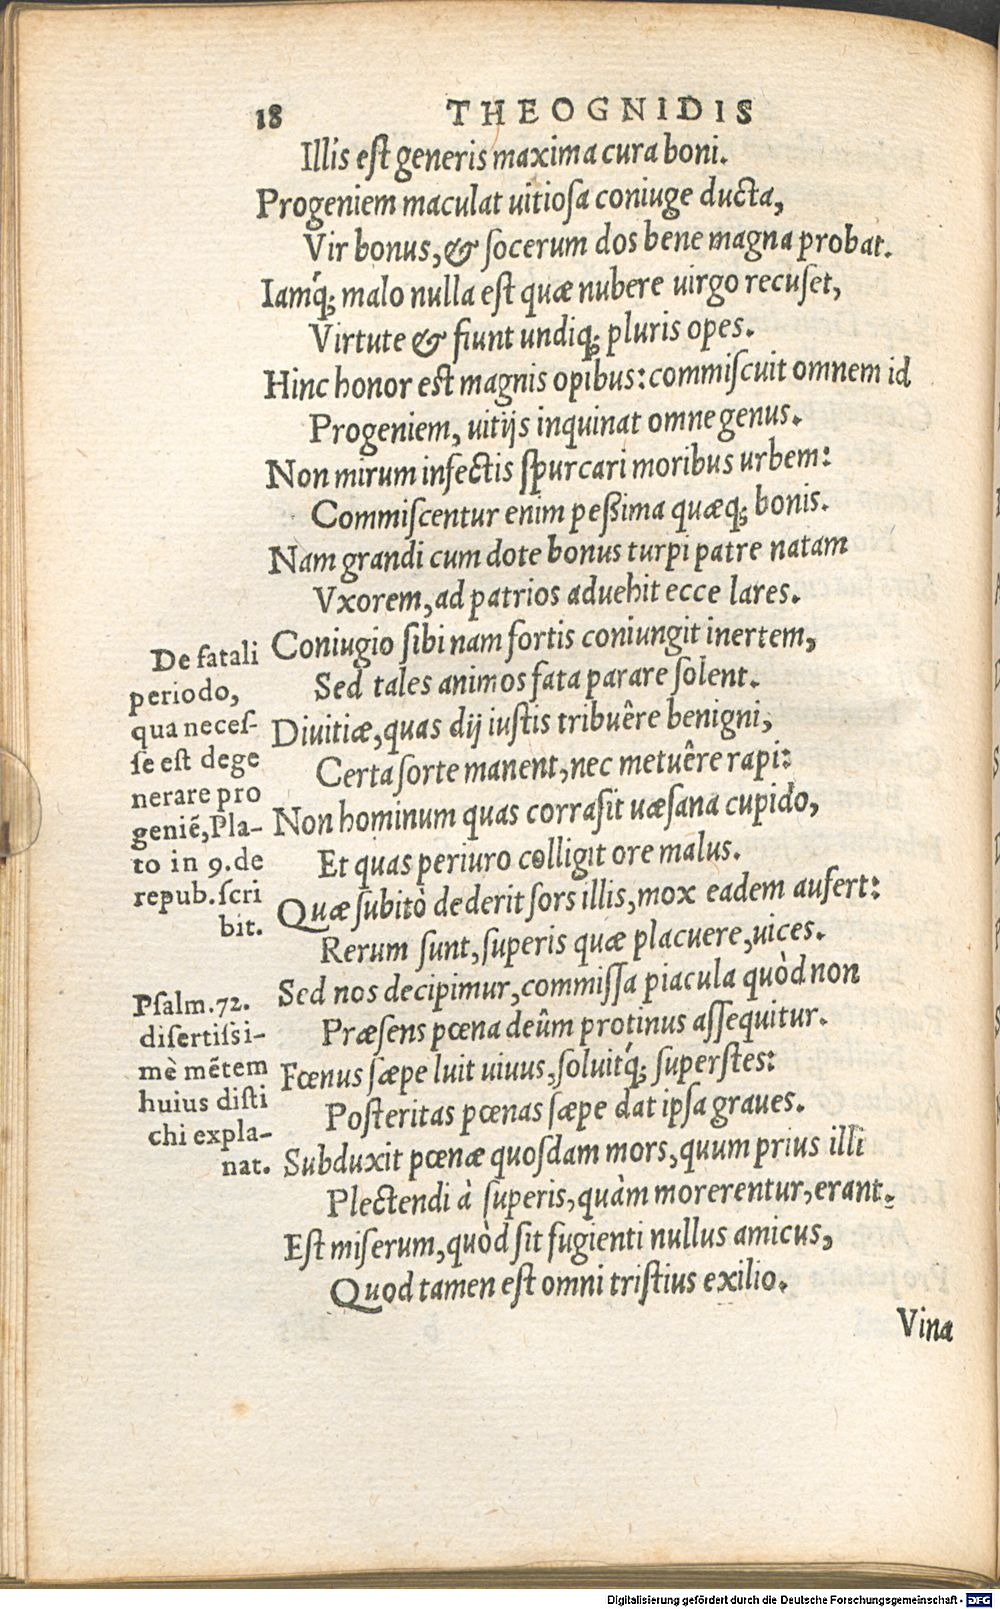 18 THEOGNIDIS
Illis est generis maxima cura boni.
Progeniem maculat uitiosa coniuge ducta,
Vir bonus, & socerum dos bene magna probat.
Iamq́; malo nulla est quæ nubere uirgo recuset,
Virtute & fiunt undiq; pluris opes.
Hinc honor est magnis opibus: commiscuit omnem id
Progeniem, uitijs inquinat omne genus.
Non mirum infectis spurcari moribus urbem:
Commiscentur enim peßima quæq; bonis.
Nam grandi cum dote bonus turpi patre natam
Vxorem, ad patrios aduehit ecce lares.
Coniugio sibi nam fortis coniungit inertem,
Sed tales animos fata parare solent.
Diuitiæ, quas dij iustis tribuêre benigni,
Certa sorte manent, nec metuêre rapi:
Non hominum quas corrasit uæsana cupido,
Et quas periuro colligit ore malus.
Quæ subitò dederit sors illis, mox eadem aufert:
Rerum sunt, superis quæ placuere, uices.
Sed nos decipimur, commissa piacula quòd non
Præsens pœna deûm protinus assequitur.
Fœnus sæpe luit uiuus, soluitq́; superstes:
Posteritas pœnas sæpe dat ipsa graues.
Subduxit pœnæ quosdam mors, quum prius illi
Plectendi à superis, quàm morerentur, erant.
Est miserum, quòd sit fugienti nullus amicus,
Quod tamen est omni tristius exilio.
Vina
De fatali
periodo,
qua neces-
se est dege
nerare pro
geniẽ, Pla-
to in 9. de
repub. scri
bit.
Psalm. 72.
disertissi-
mè mẽtem
huius disti
chi expla-
nat.
Digitalisierung gefördert durch die Deutsche Forschungsgemeinschaft - DFG